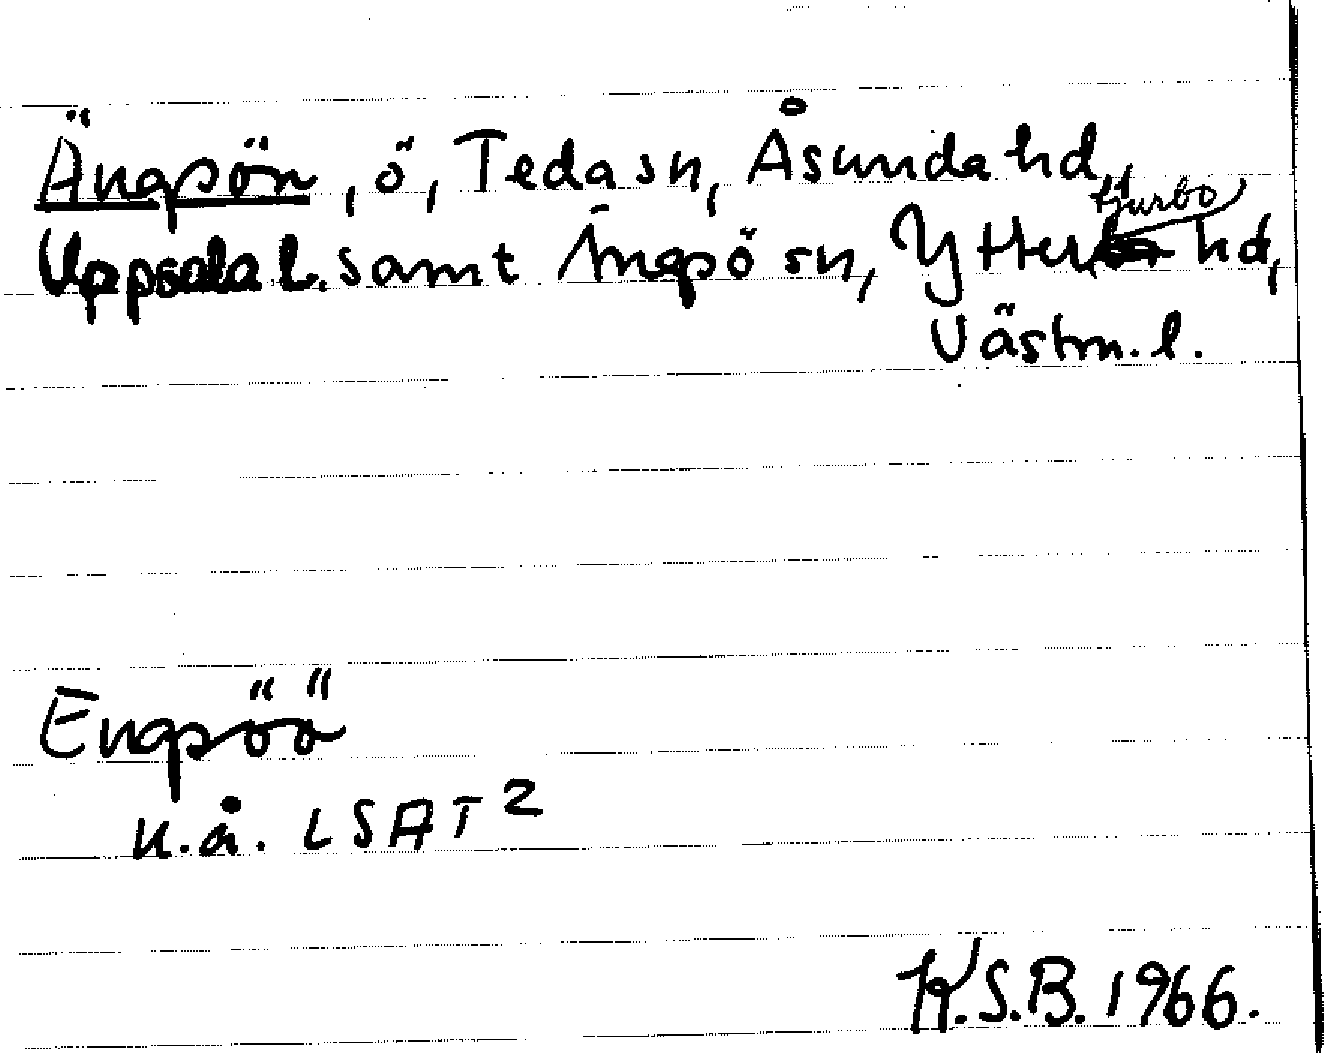 Ängsön, ö, Teda sn, Åsunda hd,
Uppsala l. samt Ängsö sn, Yttertjurbo hd,
Västm. l.
Engsöö
u.å. LSA T2
K.S.B. 1966.